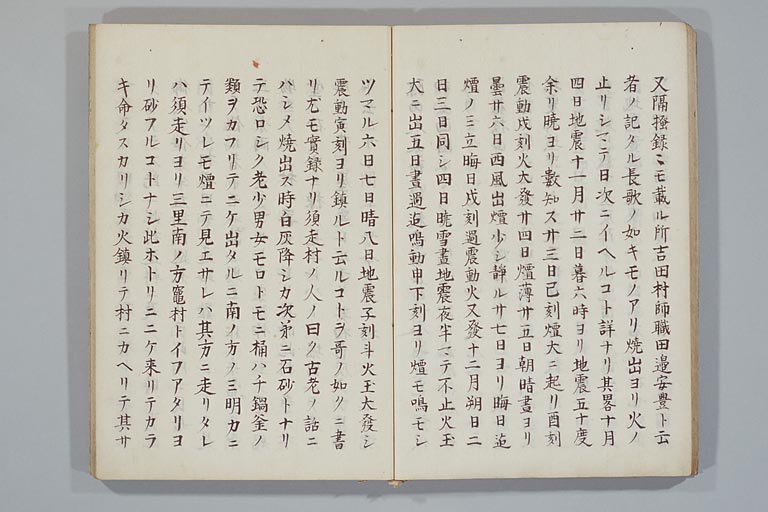 又隔掻録ニモ載ル所吉田村師職田邉安豊ト云
者ノ記タル長歌ノ如キモノアリ焼出ヨリ火ノ
止リシマテ日次ニイヘルコト詳ナリ其畧十月
四日地震十一月廿二日暮六時ヨリ地震五十度
余リ暁ヨリ數知ス廿三日已刻煙大ニ起リ酉刻
震動戌刻火大發廿四日煙薄廿五日朝晴晝ヨリ
曇廿六日西風出煙少シ静ル廿七日ヨリ晦日迄
煙ノミ立晦日戌刻過震動火又發十二月朔日二
日三日同シ四日暁雪晝地震夜半マテ不止火玉
大ニ出五日晝過迄鳴動申下刻ヨリ煙モ鳴モシ
ツマル六日七日晴八日地震子刻斗火玉大發シ
震動寅刻ヨリ鎮ルト云ルコトヲ哥ノ如クニ書
リ尤モ實録ナリ須走村ノ人ノ曰ク古老ノ話ニ
ハシメ焼出ス時白灰降シカ次第ニ石砂トナリ
テ恐ロシク老少男女モロトモニ桶ハチ鍋釜ノ
類ヲカフリテニケ出タルニ南ノ方ノミ明カニ
テイツレモ煙ニテ見エサレハ其方ニ走リタレ
ハ須走リヨリ三里南ノ方竈村トイフアタリヨ
リ砂フルコトナシ此ホトリニニケ来リテカラ
キ命タスカリシカ火鎮リテ村ニカヘリテ其サ